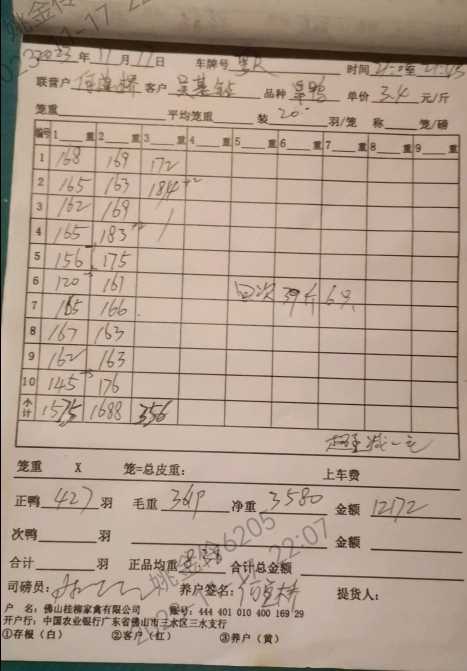 2023 年 11 月 17 日 车牌号 时间 21:0 至 21:45
联营户 何宣桥 客户 吴基 品种 单价 3.4 元/斤
笼重 平均笼重 装 20 羽/笼 称 笼/磅
编号 1 重 2 重 3 重 4 重 5 重 6 重 7 重 8 重 9 重
1 168 169 172
2 165 163 184 +2
3 162 169 /
4 165 183 +2 /
5 156 175
6 120 161 回次 39斤 6只
7 165 166
8 167 163
9 162 163
10 145 176
小计 1575 1688 356
超重减一毛
笼重 X 笼=总皮重: 上车费
正鸭 427 羽 毛重 3619 净重 3580 金额 12172
次鸭 羽 金额
合计 羽 正品均重 合计总金额
司磅员: 养户签名: 何宣桥 提货人:
户 名: 佛山桂柳家禽有限公司 账号: 444 401 010 400 169 29
开户行: 中国农业银行广东省佛山市三水区三水支行
①存根(白) ②客户(红) ③养户(黄)
姚金 6205
22:07